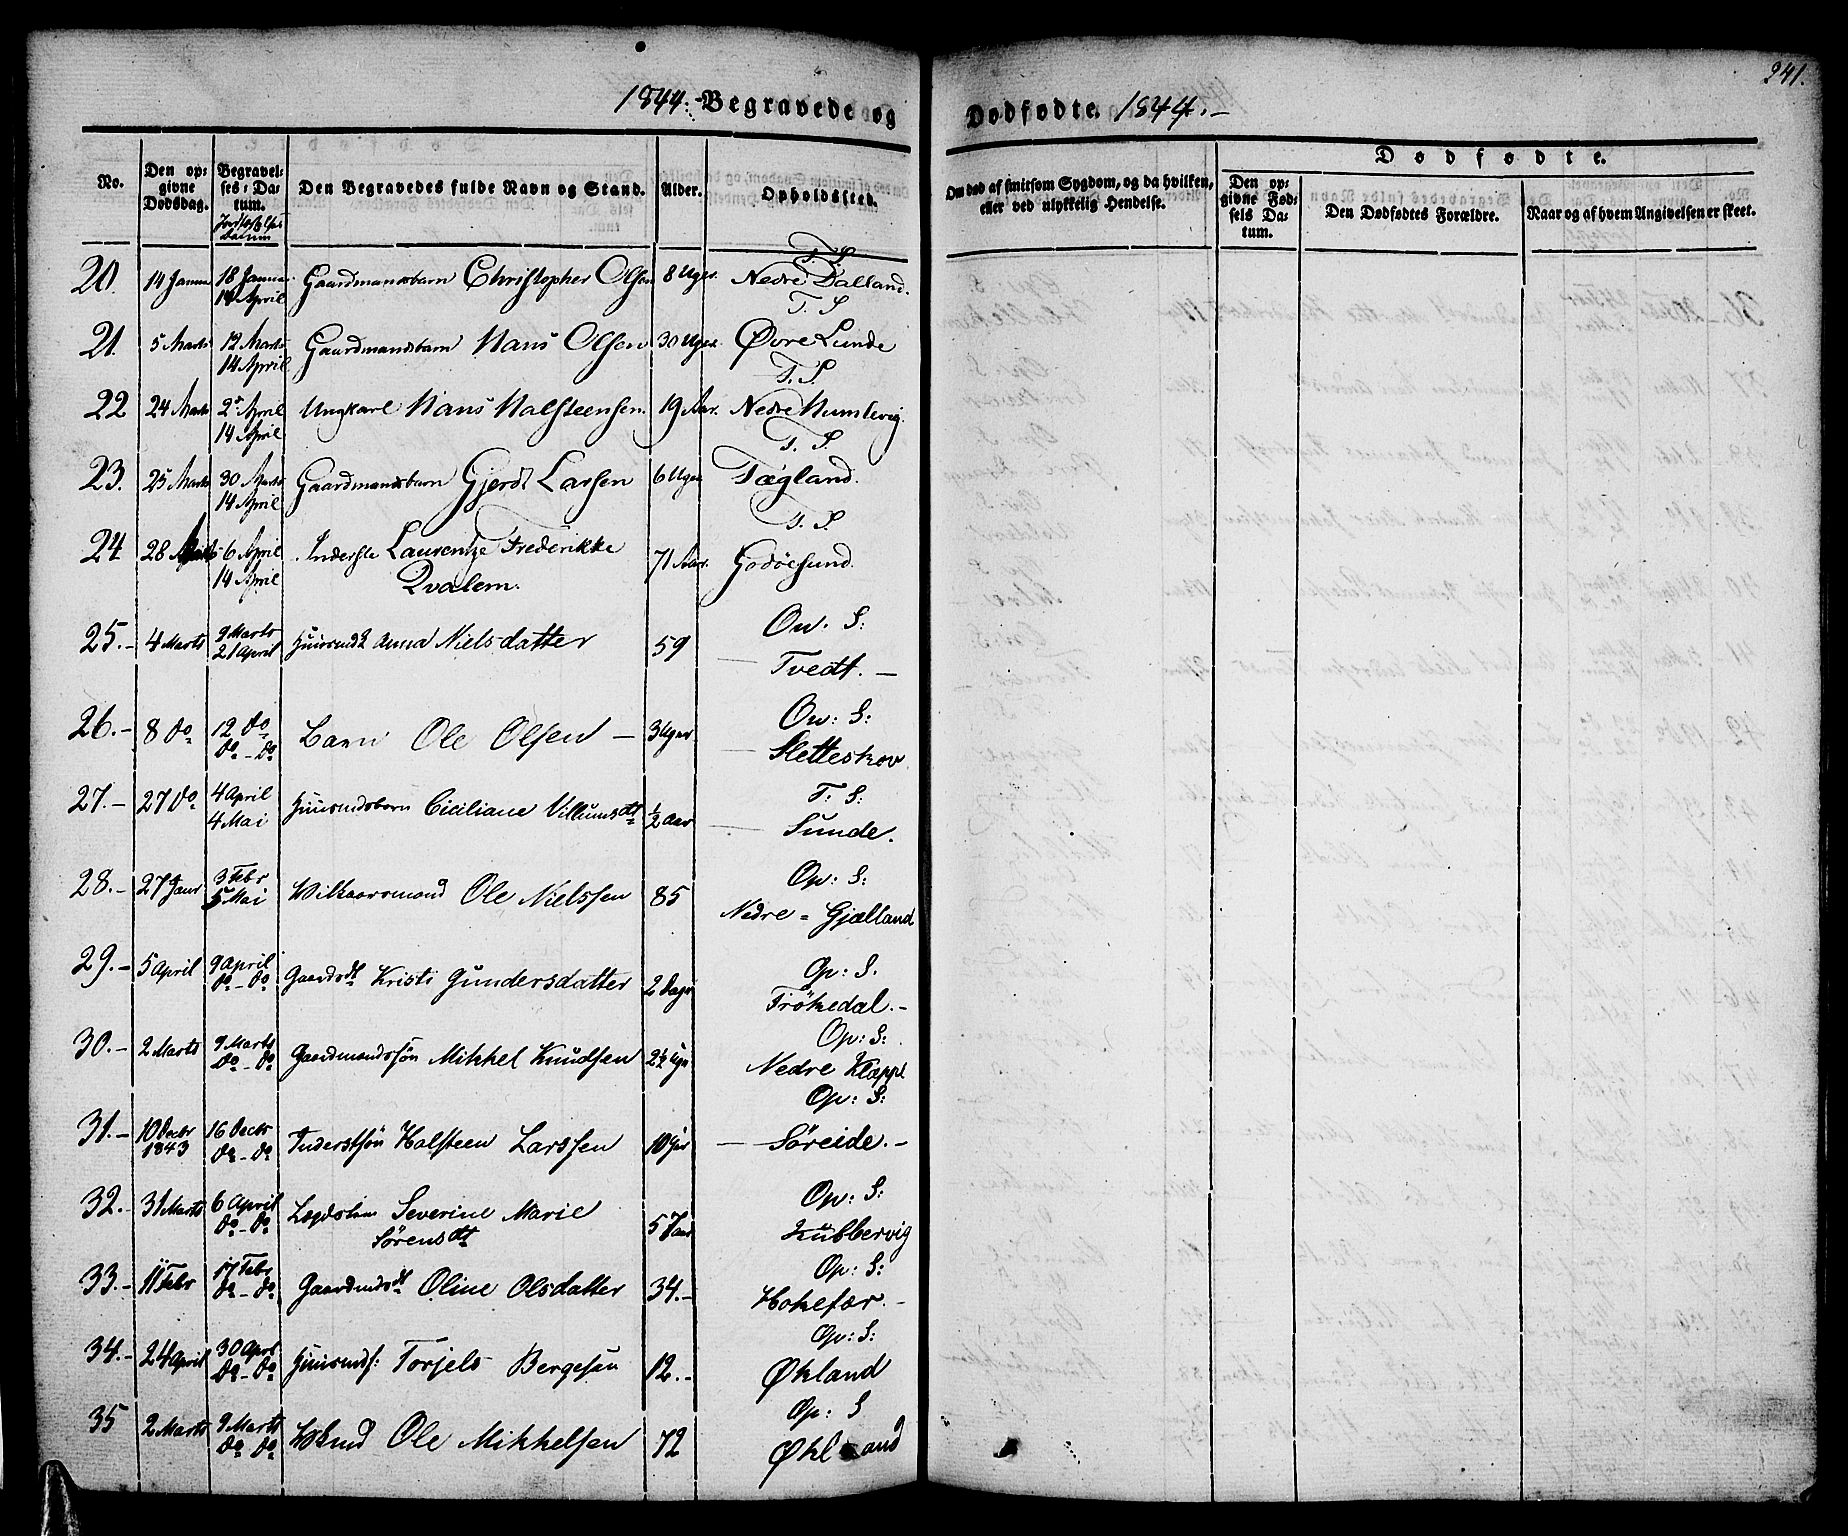 241.
1844. Begravede og
Dødfødte. 1844.
No.
Den opgivne Dødsdag.
Begravelses-Datum.
Jordfæstelses Datum
Den Begravedes fulde Navn og Stand.
Alder.
Opholdssted.
Om død af smitsom Sygdom, og da hvilken, eller ved ulykkelig Hendelse.
Dødfødte.
Den opgivne Fødsels Datum.
Den Dødfødtes Forældre.
Naar og af hvem Angivelsen er skeet.
20. 14 Janua 18 Janua 14 April Gaardmandsbarn Christopher Olsen 8 Uger T. S. Nedre Dalland.
21. 5 Marts 12 Marts 14 April Gaardmandsbarn Hans Olsen 30 Uger T. S. Øvre Lunde
22 24 Marts 2 April 14 April Ungkarl Hans Halsteensen 19 Aar. T. S. Nedre Humlevig.
23. 25 Marts 30 Marts 14 April Gaardmandsbarn Gjerdt Larsen 6 Uger T. S. Tægland.
24 28 Marts 6 April 14 April Inderste Laurentze Frederikke Qvalem. 71 Aar. T. S. Godøesund.
25.- 4 Marts 9 Marts 21 April Huusmdk Anna Nielsdatter 59 Ow. S: Tvedt.-
26.- 8 do 12 do do - do Barn Ole Olsen - 3 Uger Ow: S: Sletteskov
27.- 27 do 4 April 4 Mai Huusmdsbarn Ciciliane Villumsdt ½ Aar T. S: Sunde.
28.- 27 Janr 3 Febr 5 Mai Wilkaarsmand Ole Nielssen 85 Op: S: Nedre = Gjælland
29.- 5 April 9 April do - do Gaardsdt Kristi Gundersdatter 2 Dage Op: S. Frøkedal.-
30.- 2 Marts 9 Marts do - do Gaardmandssøn Mikkel Knudsen 2½ Uger Op: S: Nedre Klæppe
31.- 10 Decbr 1843 16 Decbr do - do Inderstsøn Halsteen Larssen Op: S: - Søreide.-
32.- 31 Marts 6 April do - do Lægdslem Severine Marie Sørensdt Op: S: Kubbervig
33.- 11 Febr 17 Febr do - do Gaardmdsdt Oline Olsdatter 34.- Op: S: Hokefær.-
34.- 24 April 30 Aprl do - do Huusmds: Torjels Bergesen 12.- Op: S: Økland
35 2 Marts 9 Marts do - do Ole Mikkelsen 72 Op: S Økland